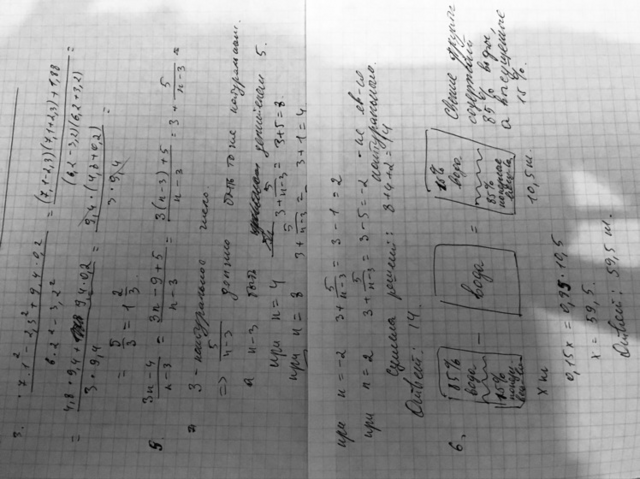 3. 7.1² - 2,3² + 9,4·0,2 / 6.2² - 3,2² = (7,1-2,3)(7,1+2,3)+1.88 / (6,2-3,2)(6,2+3,2) =
= 4.8·9,4+ 9,4·0,2 / 3·9,4 = 9,4·(4,8+0,2) / 3·9,4 =
= 5/3 = 1 2/3.
5 3n-4 / n-3 = 3n-9+5 / n-3 = 3(n-3)+5 / n-3 = 3 + 5 / n-3
3 - натуральное число
=> 5/n-3 должно быть тоже натуральным.
а n-3 быть делителем 5.
при n = 4 3+ 5/n-3 = 3+5=8.
при n = 8 3+ 5/n-3 = 3+1=4
при n = -2 3+ 5/n-3 = 3-1=2
при n = 2 3+ 5/n-3 = 3-5=-2 - не яв-ся натуральным.
Сумма решений: 8+4+2=14
Ответ: 14.
6.
85% вода
15%
x кг
-
вода
=
вода
85%
10,5 кг.
Свежие фрукты содержат 85% воды, а высушенные 15%.
0,15x = 0,85·10,5
x = 59,5.
Ответ: 59,5 кг.